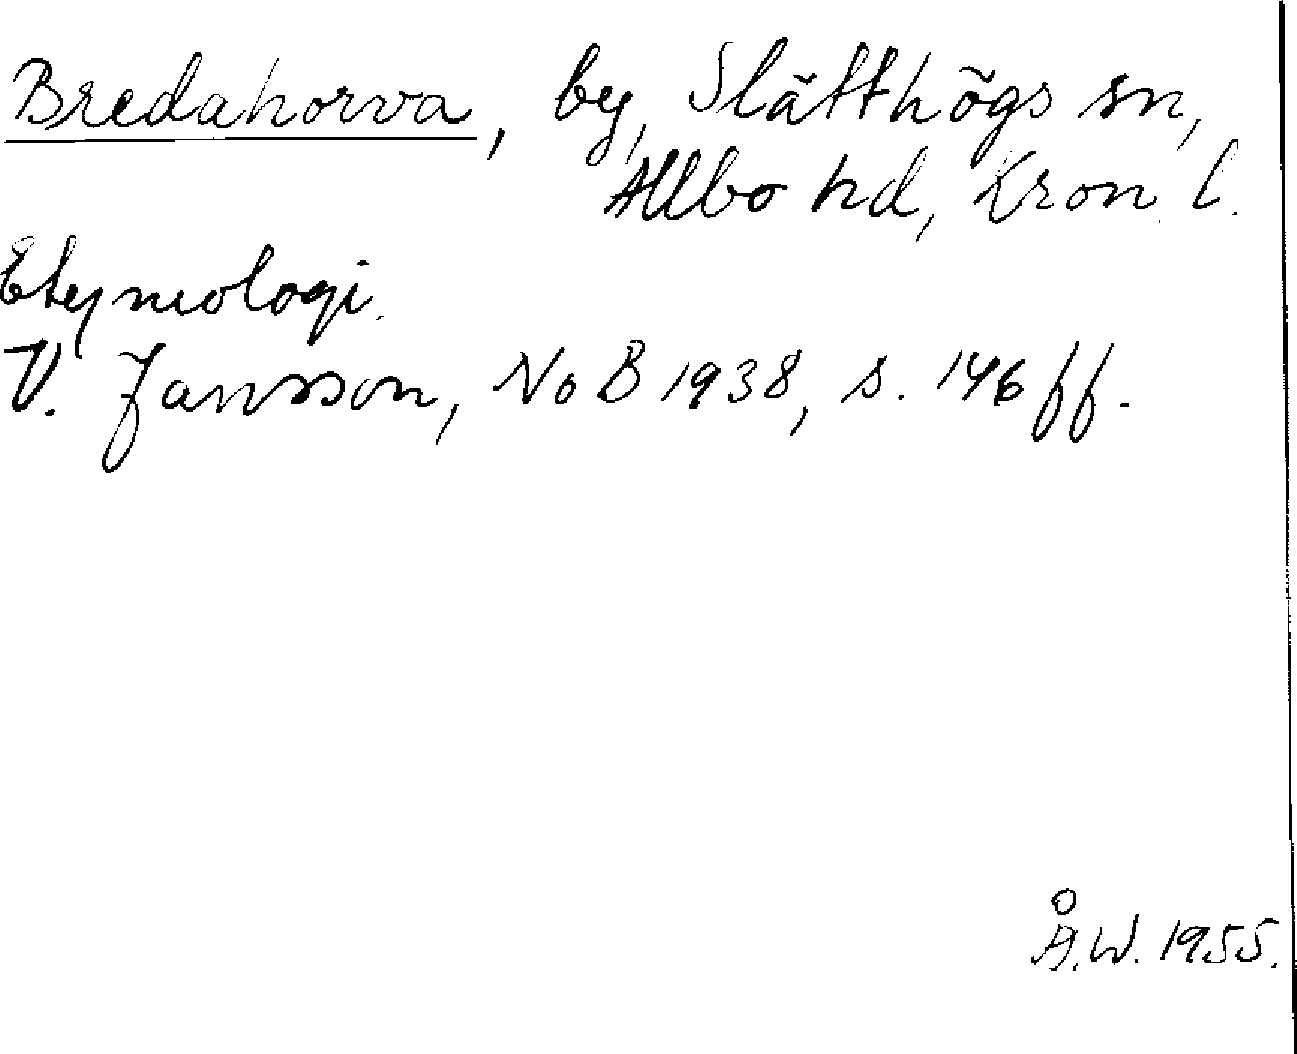 Bredahorva, by, Slätthögs sn,
Allbo hd, Kron. l.
Etymologi.
V. Jansson, NoB 1938, s. 146 ff.
Å.W. 1955.